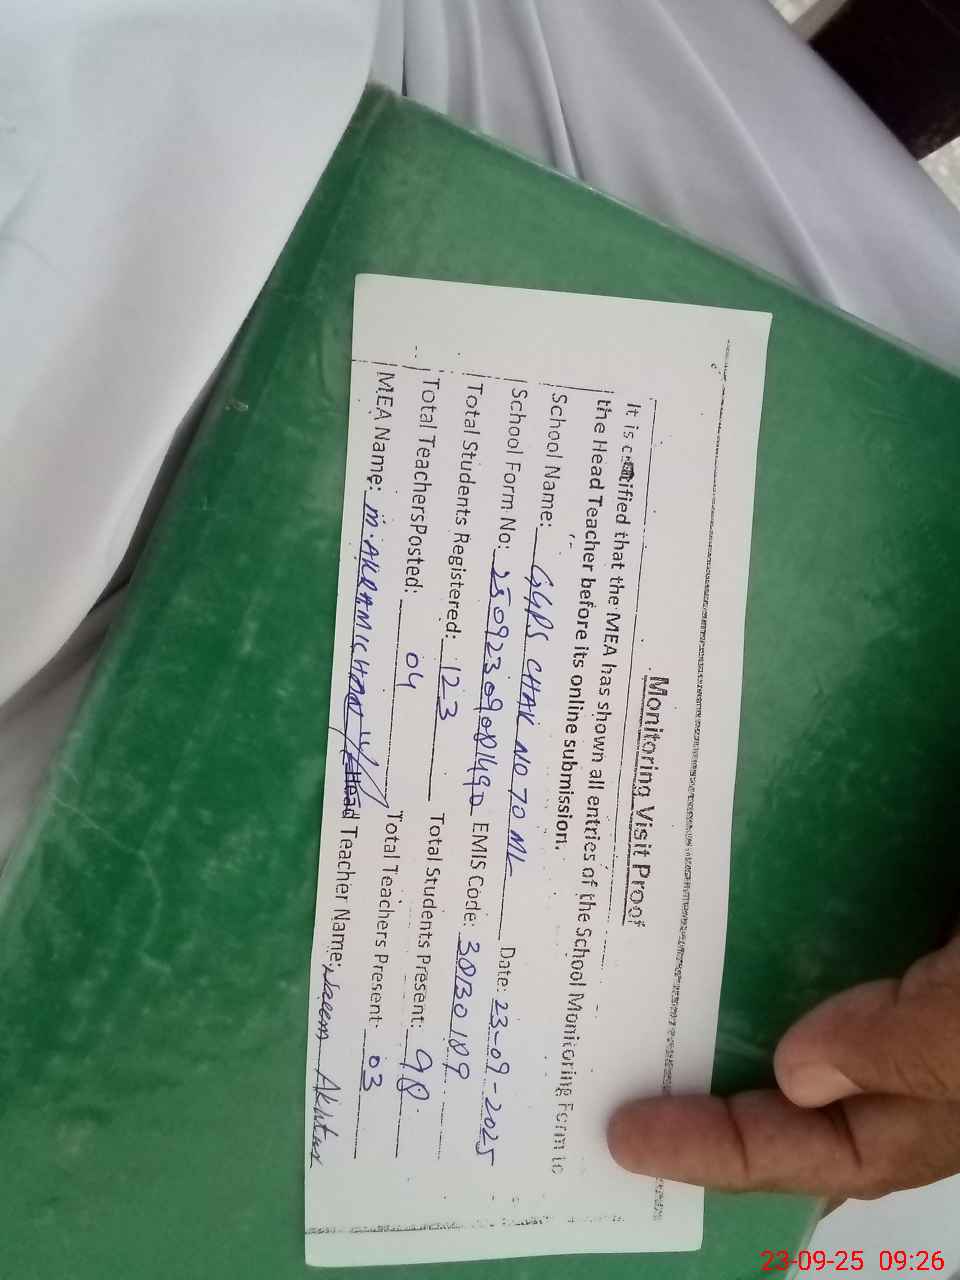 Monitoring Visit Proof
It is certified that the MEA has shown all entries of the School Monitoring Form to
the Head Teacher before its online submission.
School Name: GGPS CHAK NO 70 ML Date: 23-09-2025
School Form No: 25092309081490 EMIS Code: 30130189
Total Students Registered: 123 Total Students Present: 98
Total TeachersPosted: 04 Total Teachers Present 03
MEA Name: M. AKRAM Head Teacher Name: Naeem Akhtar
23-09-25 09:26